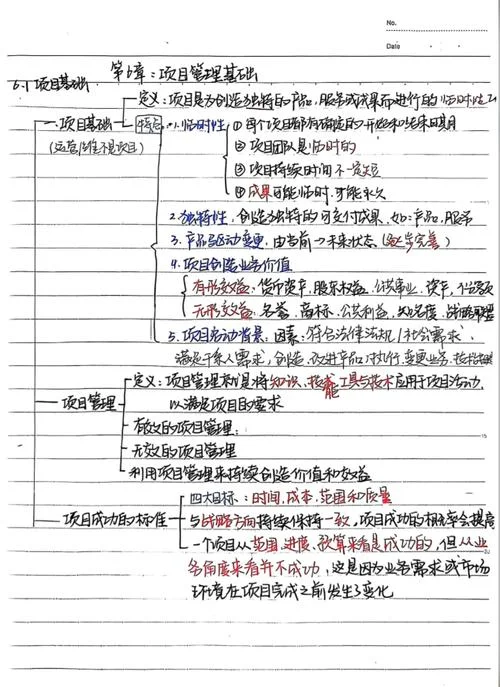 No.
Date
第6章：项目管理基础
6.1 项目基础
定义：项目是为创造独特的产品，服务或成果而进行的临时性工
一、项目基础
(运营/维不是项目)
特点
1. 临时性
① 每个项目都有确定的开始和结束日期
② 项目团队是临时的
③ 项目持续时间不一定短
④ 成果可能临时，可能永久
2. 独特性，创造独特的可交付成果，如：产品，服务
3. 产品驱动变更，由当前→未来状态（逐步完善）
4. 项目创造业务价值
有形效益：货币资产，股东权益，公共事业，资本，
无形效益：名誉，商标，公共利益，知名度，战略联盟
5. 项目启动背景，因素：符合法律法机/社会需求，
满足干系人需求，创造，改进产品，执行，变更业务，
定义：项目管理就是将知识，技能，工具与技术应用于项目活动，
以满足项目的需求
项目管理
有效的项目管理：
无效的项目管理
利用项目管理来持续创造价值和效益
四大目标：时间，成本，范围和质量
项目成功的标准
与战略方向持续保持一致，项目成功的概率会提高
一个项目从范围，进度，预算来看是成功的，但从业
务角度来看并不成功，这是因为业务需求或市场
环境在项目完成之前发生了变化